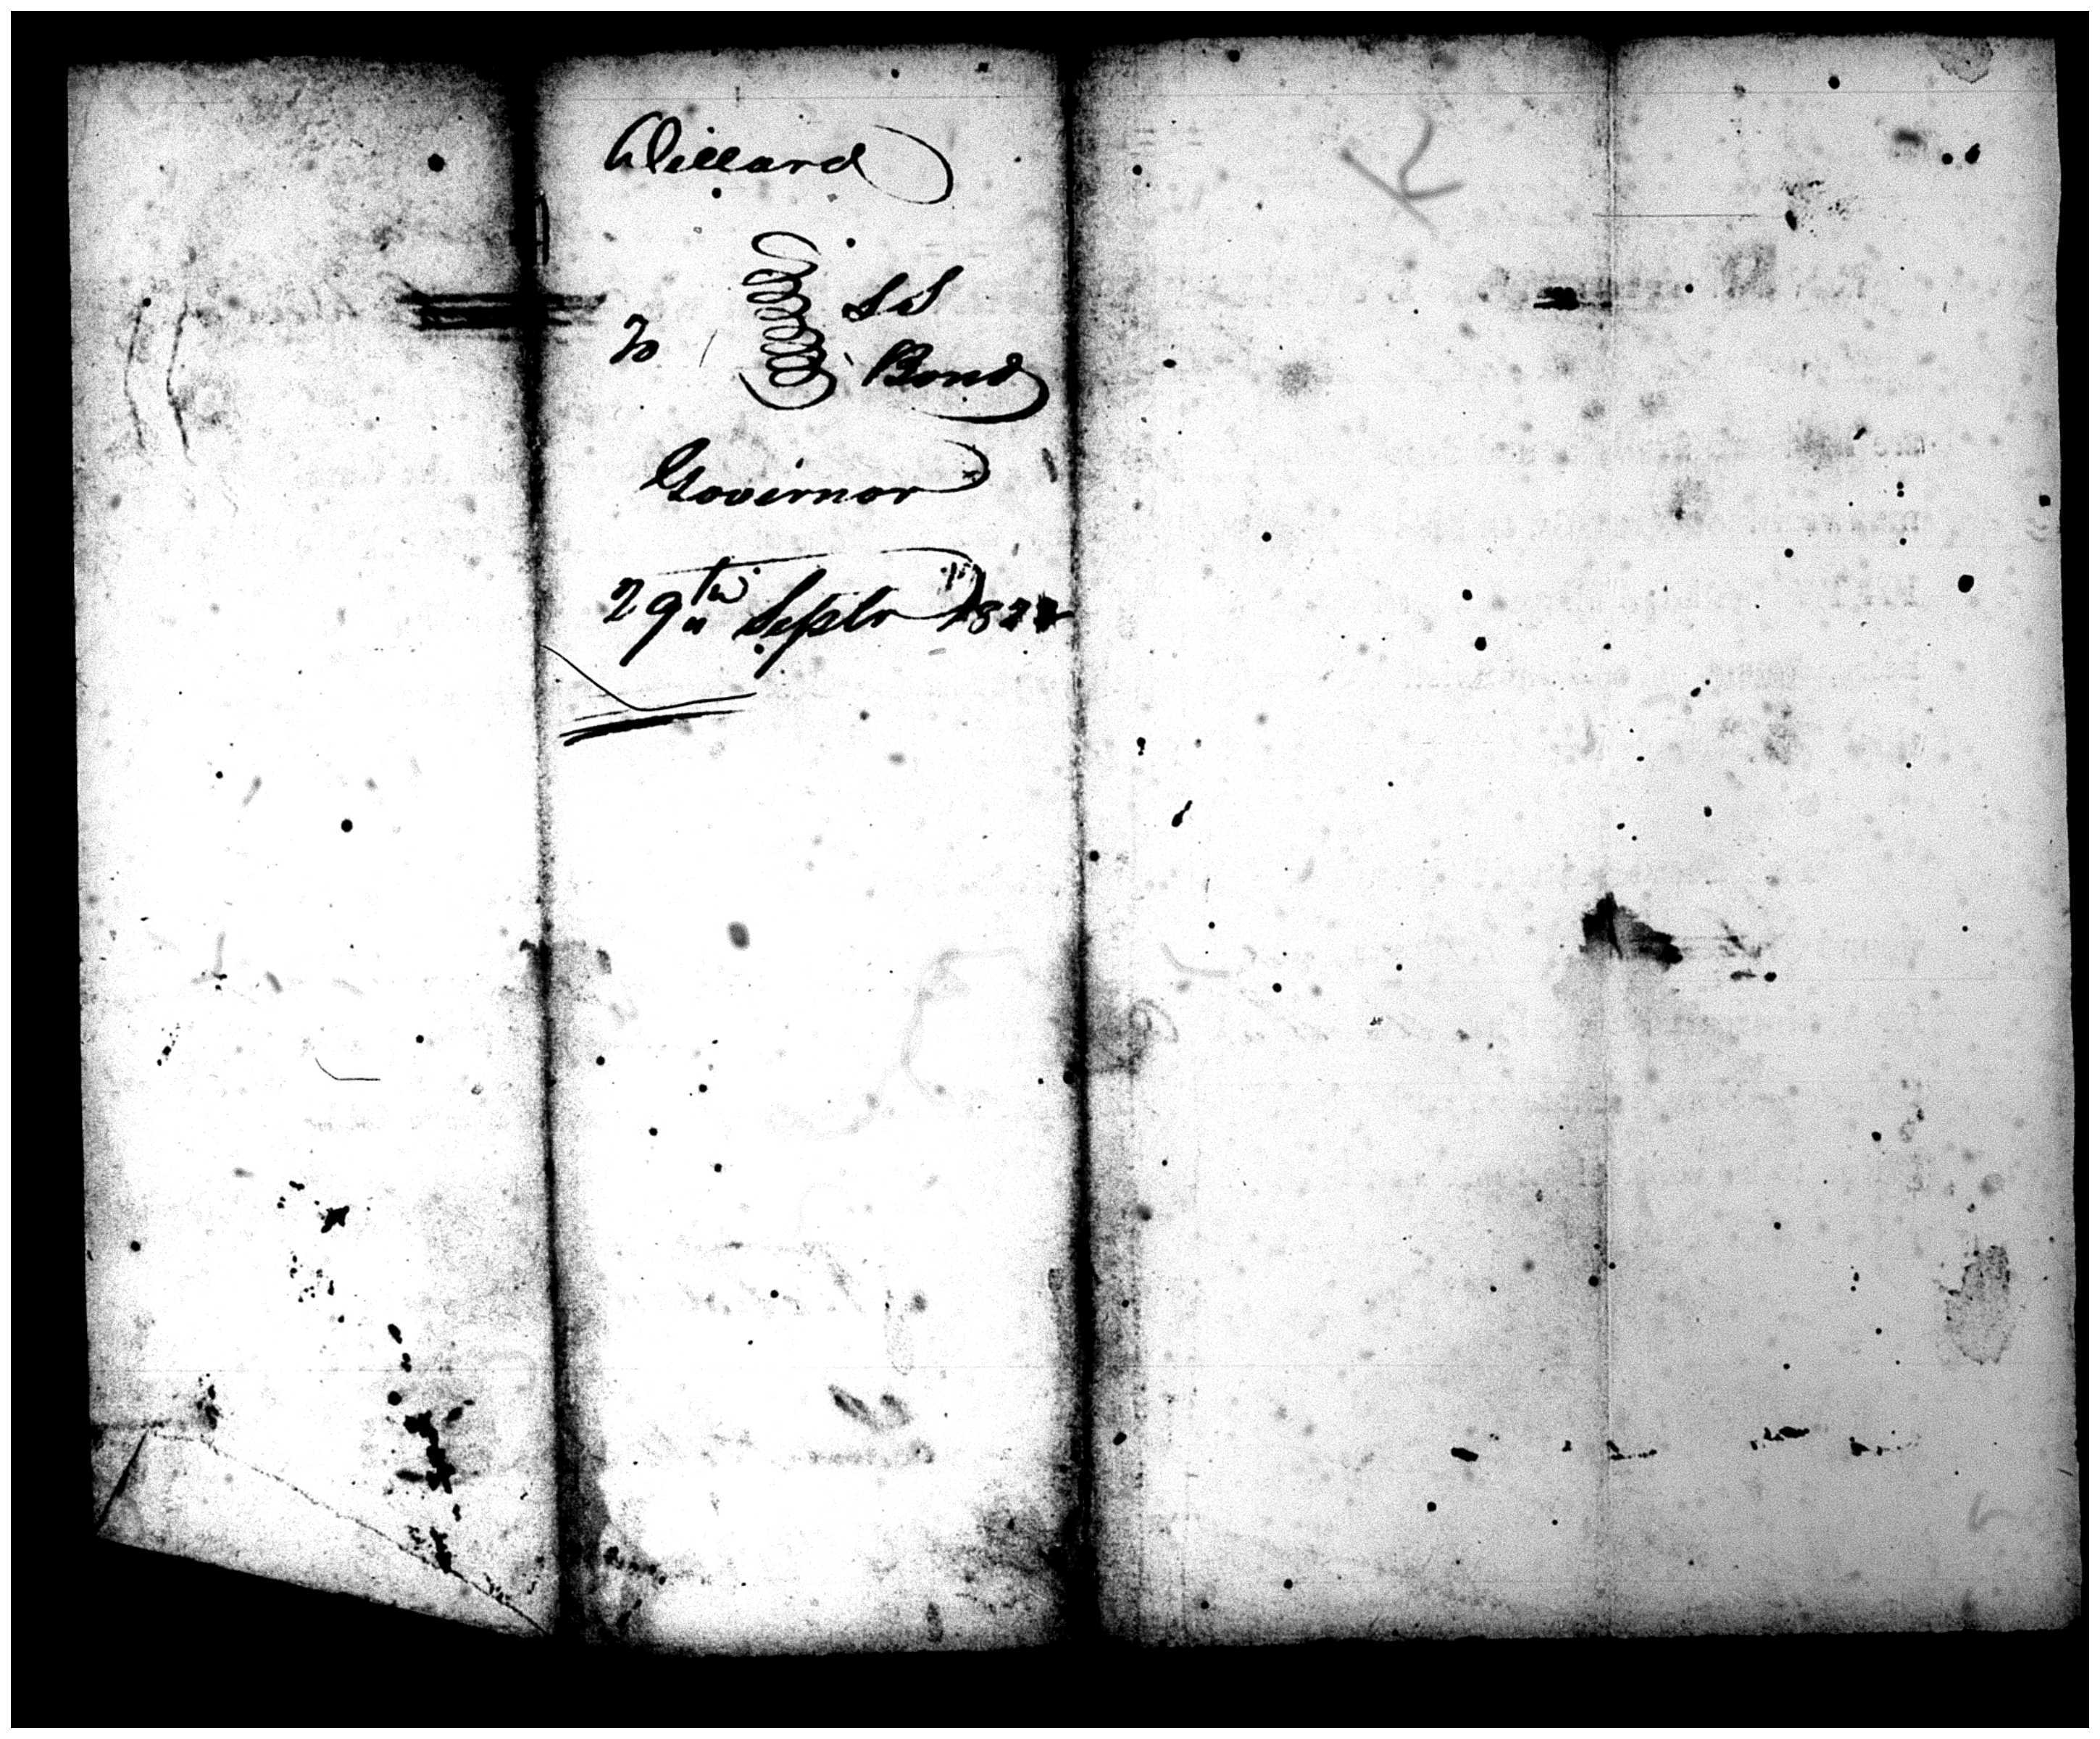 Dillard
To
Bond
Governor
29th Septr 182
K